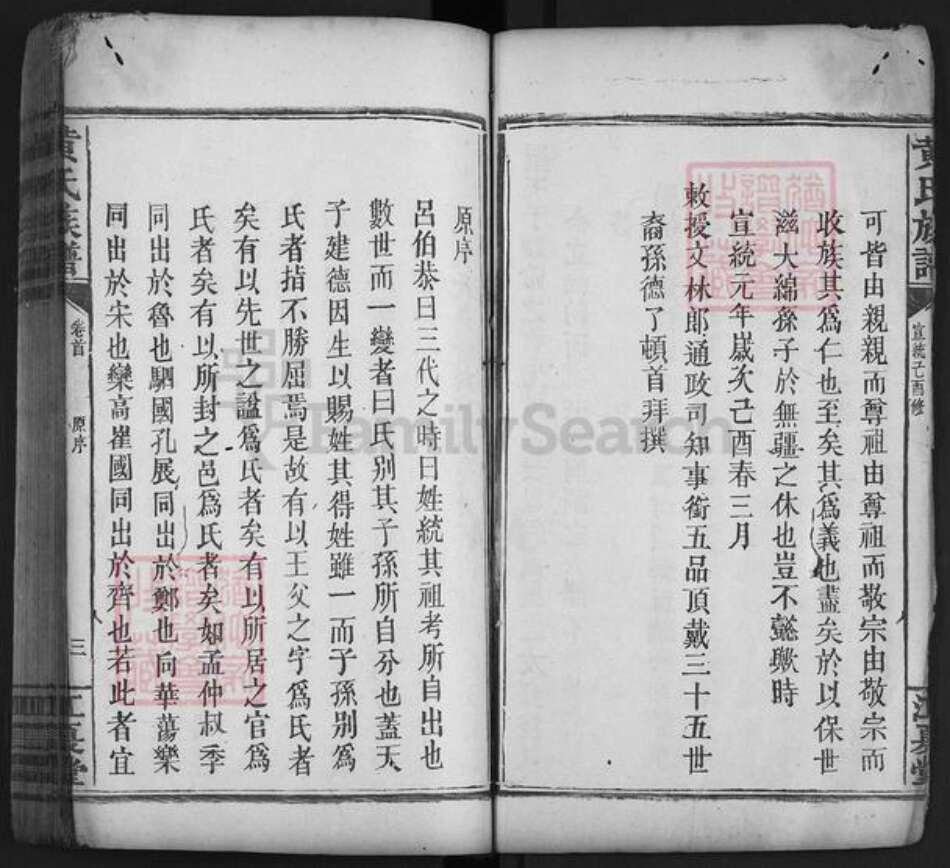 黃氏族譜
宣統己酉修
江夏堂
可皆由親親而尊祖由尊祖而敬宗由敬宗而
收族其爲仁也至矣其爲義也盡矣於以保世
滋大綿孫子於無疆之休也豈不懿歟時
宣統元年歲次己酉春三月
敕授文林郎通政司知事銜五品頂戴三十五世
裔孫德了頓首拜撰
原序
呂伯恭曰三代之時曰姓統其祖考所自出也
數世而一變者曰氏別其子孫所自分也蓋天
子建德因生以賜姓其得姓雖一而子孫別爲
氏者指不勝屈焉是故有以王父之字爲氏者
矣有以先世之諡爲氏者矣有以所居之官爲
氏者矣有以所封之邑爲氏者矣如孟仲叔季
同出於魯也駟國孔展同出於鄭也向華蕩樂
同出於宋也欒高崔國同出於齊也若此者宜
黃氏族譜
卷首
原序
三
江夏堂
FamilySearch